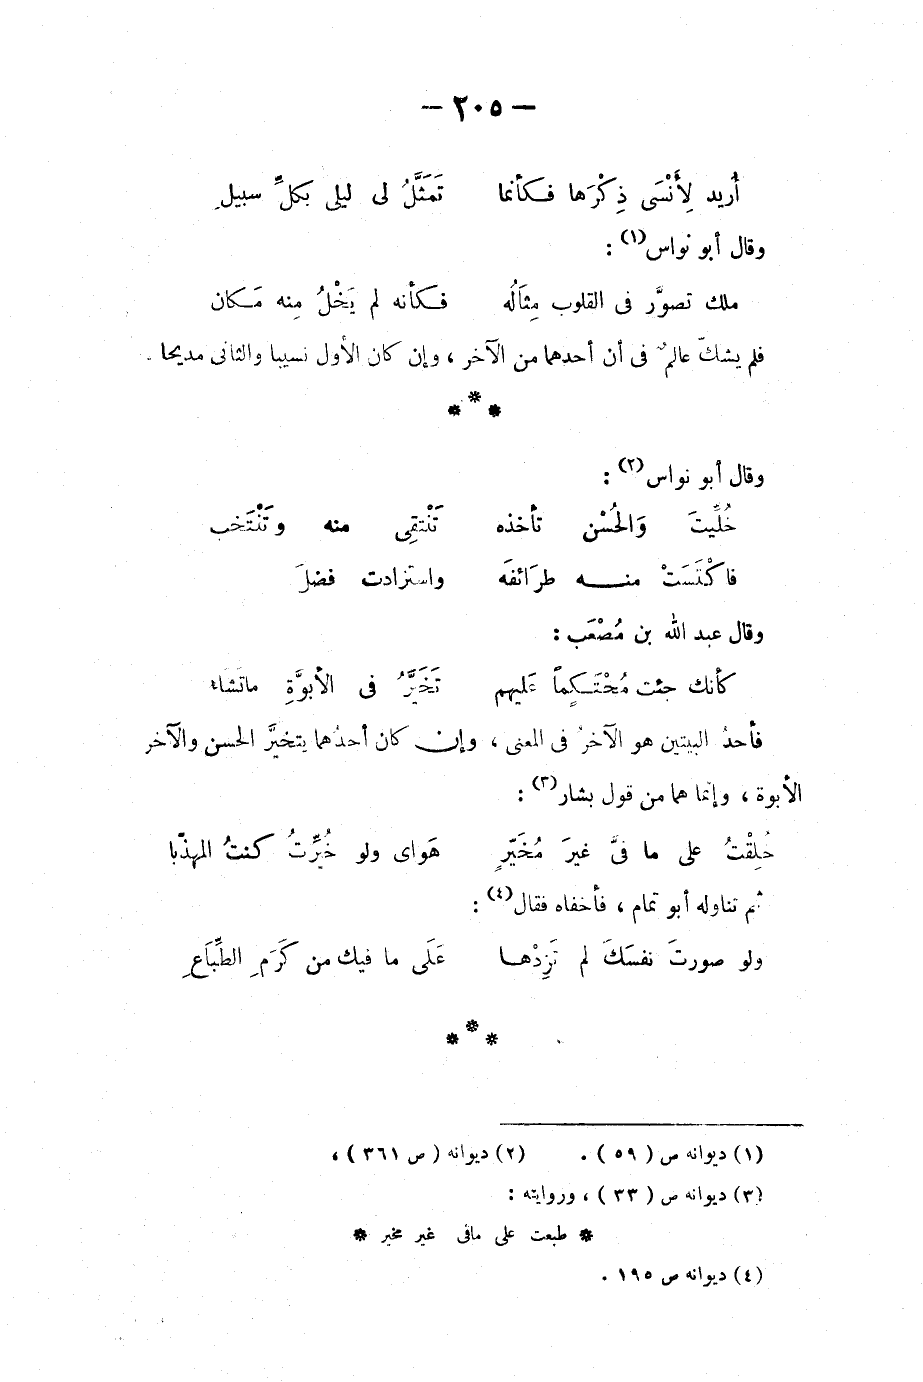 — ٢٠٥ —
أُريد لِأَنْسَى ذِكْرَها فكأنما تَمَثَّلُ لى ليلى بكلِّ سبيلِ
وقال أبو نواس(١) :
ملك تصوَّر فى القلوب مِثَالُه فكأنه لم يَخْلُ مِنه مَكان
فلم يشكّ عالمٌ فى أن أحدهما من الآخر ، وإن كان الأول نسيبا والثانى مديحا .
* * *
وقال أبو نواس(٢) :
خُلِّيتَ وَالحُسْن تأخذه تَنْتَقِى منه وتَنْتَخب
فاكْتَسَتْ منه طرَائفَه واستزادت فضلَ
وقال عبد الله بن مُصْعَب :
كأنك جئت مُحْتَكِماً عَليهم تَخَيَّرُ فى الأبوَّةِ ماتَشاء
فأحدُ البيتين هو الآخرُ فى المعنى ، وإن كان أحدُهما يتخيَّر الحسن والآخر
الأبوة ، وإنما هما من قول بشار(٣) :
خُلِقْتُ على ما فىَّ غيرَ مُخَيّرٍ هَواى ولو خُيِّرتُ كنتُ المهذّبا
ثم تناوله أبو تمام ، فأخفاه فقال(٤) :
ولو صورتَ نفسَكَ لم تَزِدْها عَلَى ما فيك من كَرَمِ الطِّبَاعِ
* * *
(١) ديوانه ص ( ٥٩ ) . (٢) ديوانه ( ص ٣٦١ ) ،
(٣) ديوانه ص ( ٣٣ ) ، وروايته :
* طبعت على مافى غير مخير *
(٤) ديوانه ص ١٩٥ .